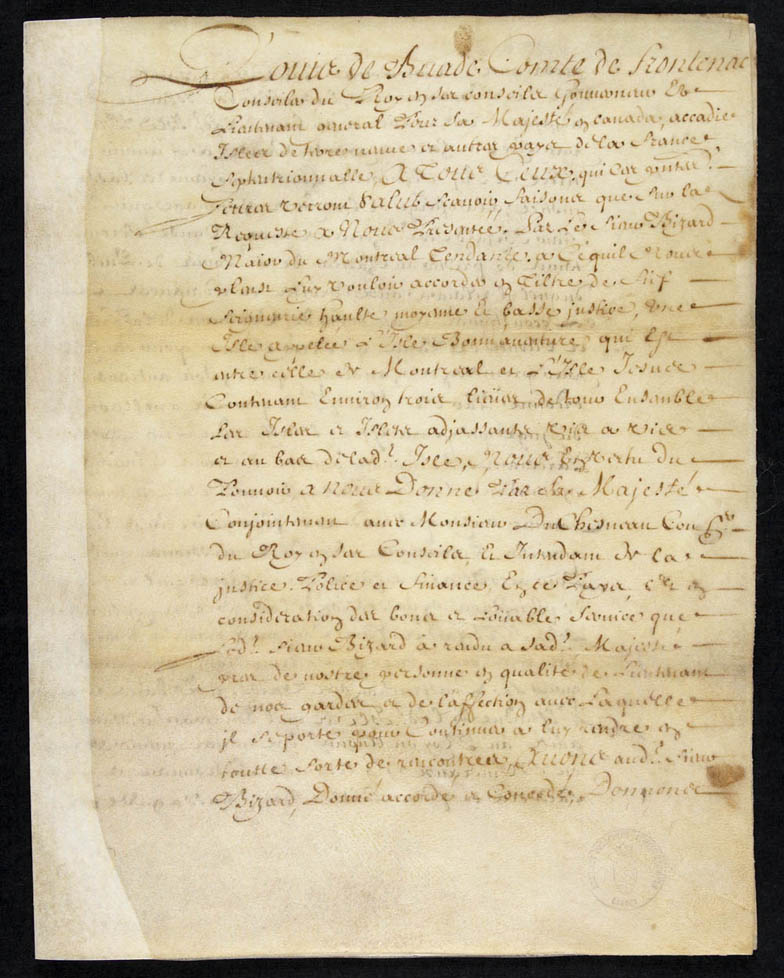 Louis de Buade Comte de Frontenac
Conseiler du Roy en ses conseils Gouverneur Et
Lieutenant general Pour Sa Majesté en canada, accadie
Isles de terre neuve et autres pays de la France
Septentrionnalle, A Tous Ceux, qui ces pntes
lettres verront Salut Scavoir faisons que sur la
Requeste a Nous Presentée, Par Le Sieur Bizard
Maior du Montreal Tendante, a Ce quil Nous
pleust Luy vouloir accorder en Tiltre de fief
Seigneurie haulte moyenne et basse justice, Une
Isle appelée L'Isle Bonnaventure, qui Est
entre celle de Montreal et L'Isle Jesus
Contenant Environ trois lieües de tour Ensemble
Les Isles et Islets adjassants vis a vis
et au bas de lad. Isle, Nous En vertu du
Pouvoir a nous Donné Par Sa Majesté
Conjointement avec Monsieur DuChesneau Conser
du Roy en ses Conseils, et Intendant de la
justice. Police et finance, En ce Pays, Et en
consideration des bons et Loüable Service que
Led. Sieur Bizard a rendu a Sad. Majesté
pres de nostre personne en qualité de Lieutenant
de nos gardes et de l'affection avec Laquelle
il se porte pour Continuer a luy rendre en
toutte sorte de rencontres, Avons aud. Sieur
Bizard, Donné accordé et Concedé, Donnons